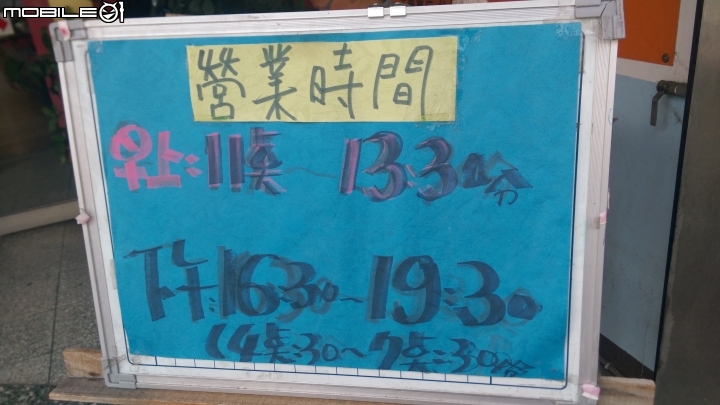 MOBILE01
營業時間
早上:11點~13:30分
下午:16:30~19:30
(4點:30~7點:30分